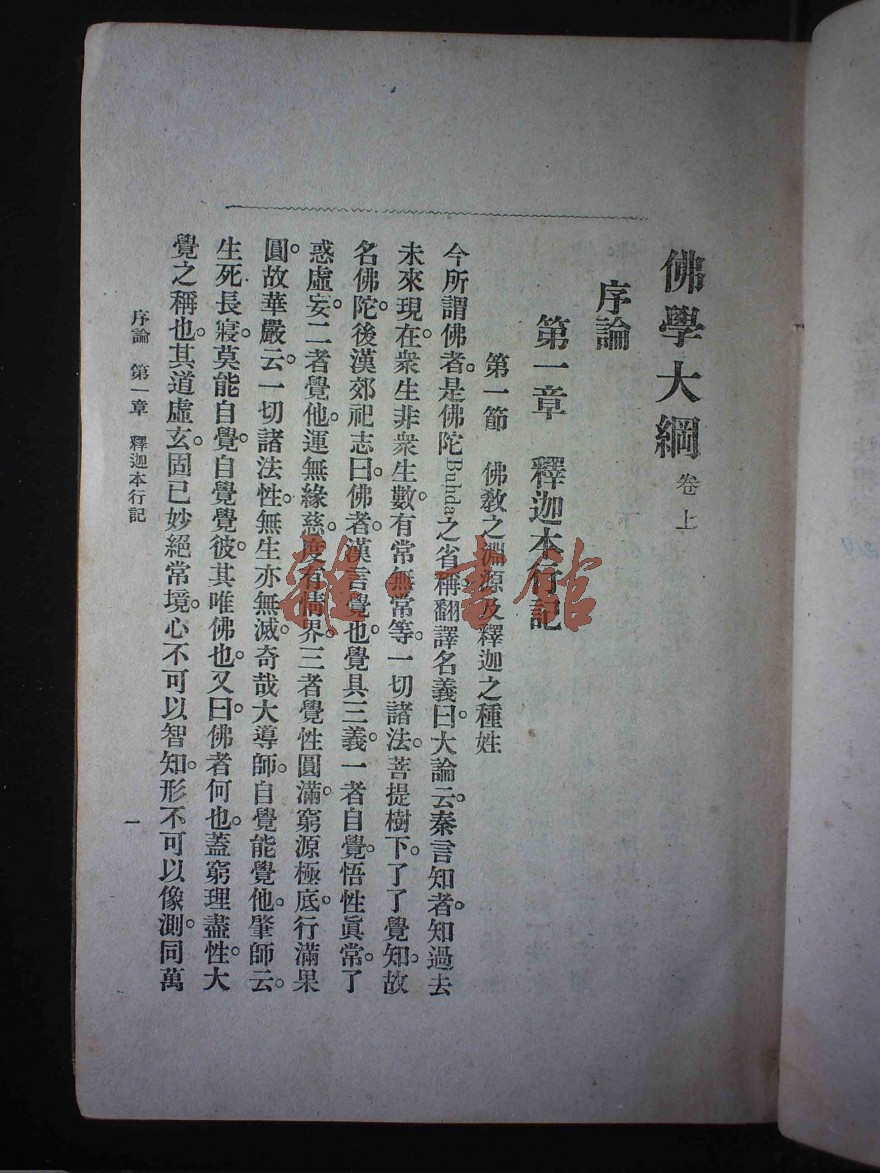 佛學大綱 卷上
序論
第一章 釋迦本行記
第一節 佛教之淵源及釋迦之種姓
今所謂佛者。是佛陀Buhda之省稱翻譯名義。曰大論云。秦言知者。知過去
未來現在衆生非衆生數有常無常等。一切諸法。菩提樹下。了了覺知。故
名佛陀。後漢郊祀志曰。佛者。漢言覺也。覺具三義。一者自覺。悟性眞常。了
惑虛妄。二者覺他。運無緣慈。度有情界。三者覺性圓滿。窮源極底。行滿果
圓。故華嚴云。一切諸法性。無生亦無滅。奇哉大導師。自覺能覺他。肇師云。
生死長寢。莫能自覺。自覺覺彼。其唯佛也。又曰。佛者何也。蓋窮理盡性。大
覺之稱也。其道虛玄。固已妙絕常境。心不可以智知。形不可以像測。同萬
序論 第一章 釋迦本行記
一
雜·書館